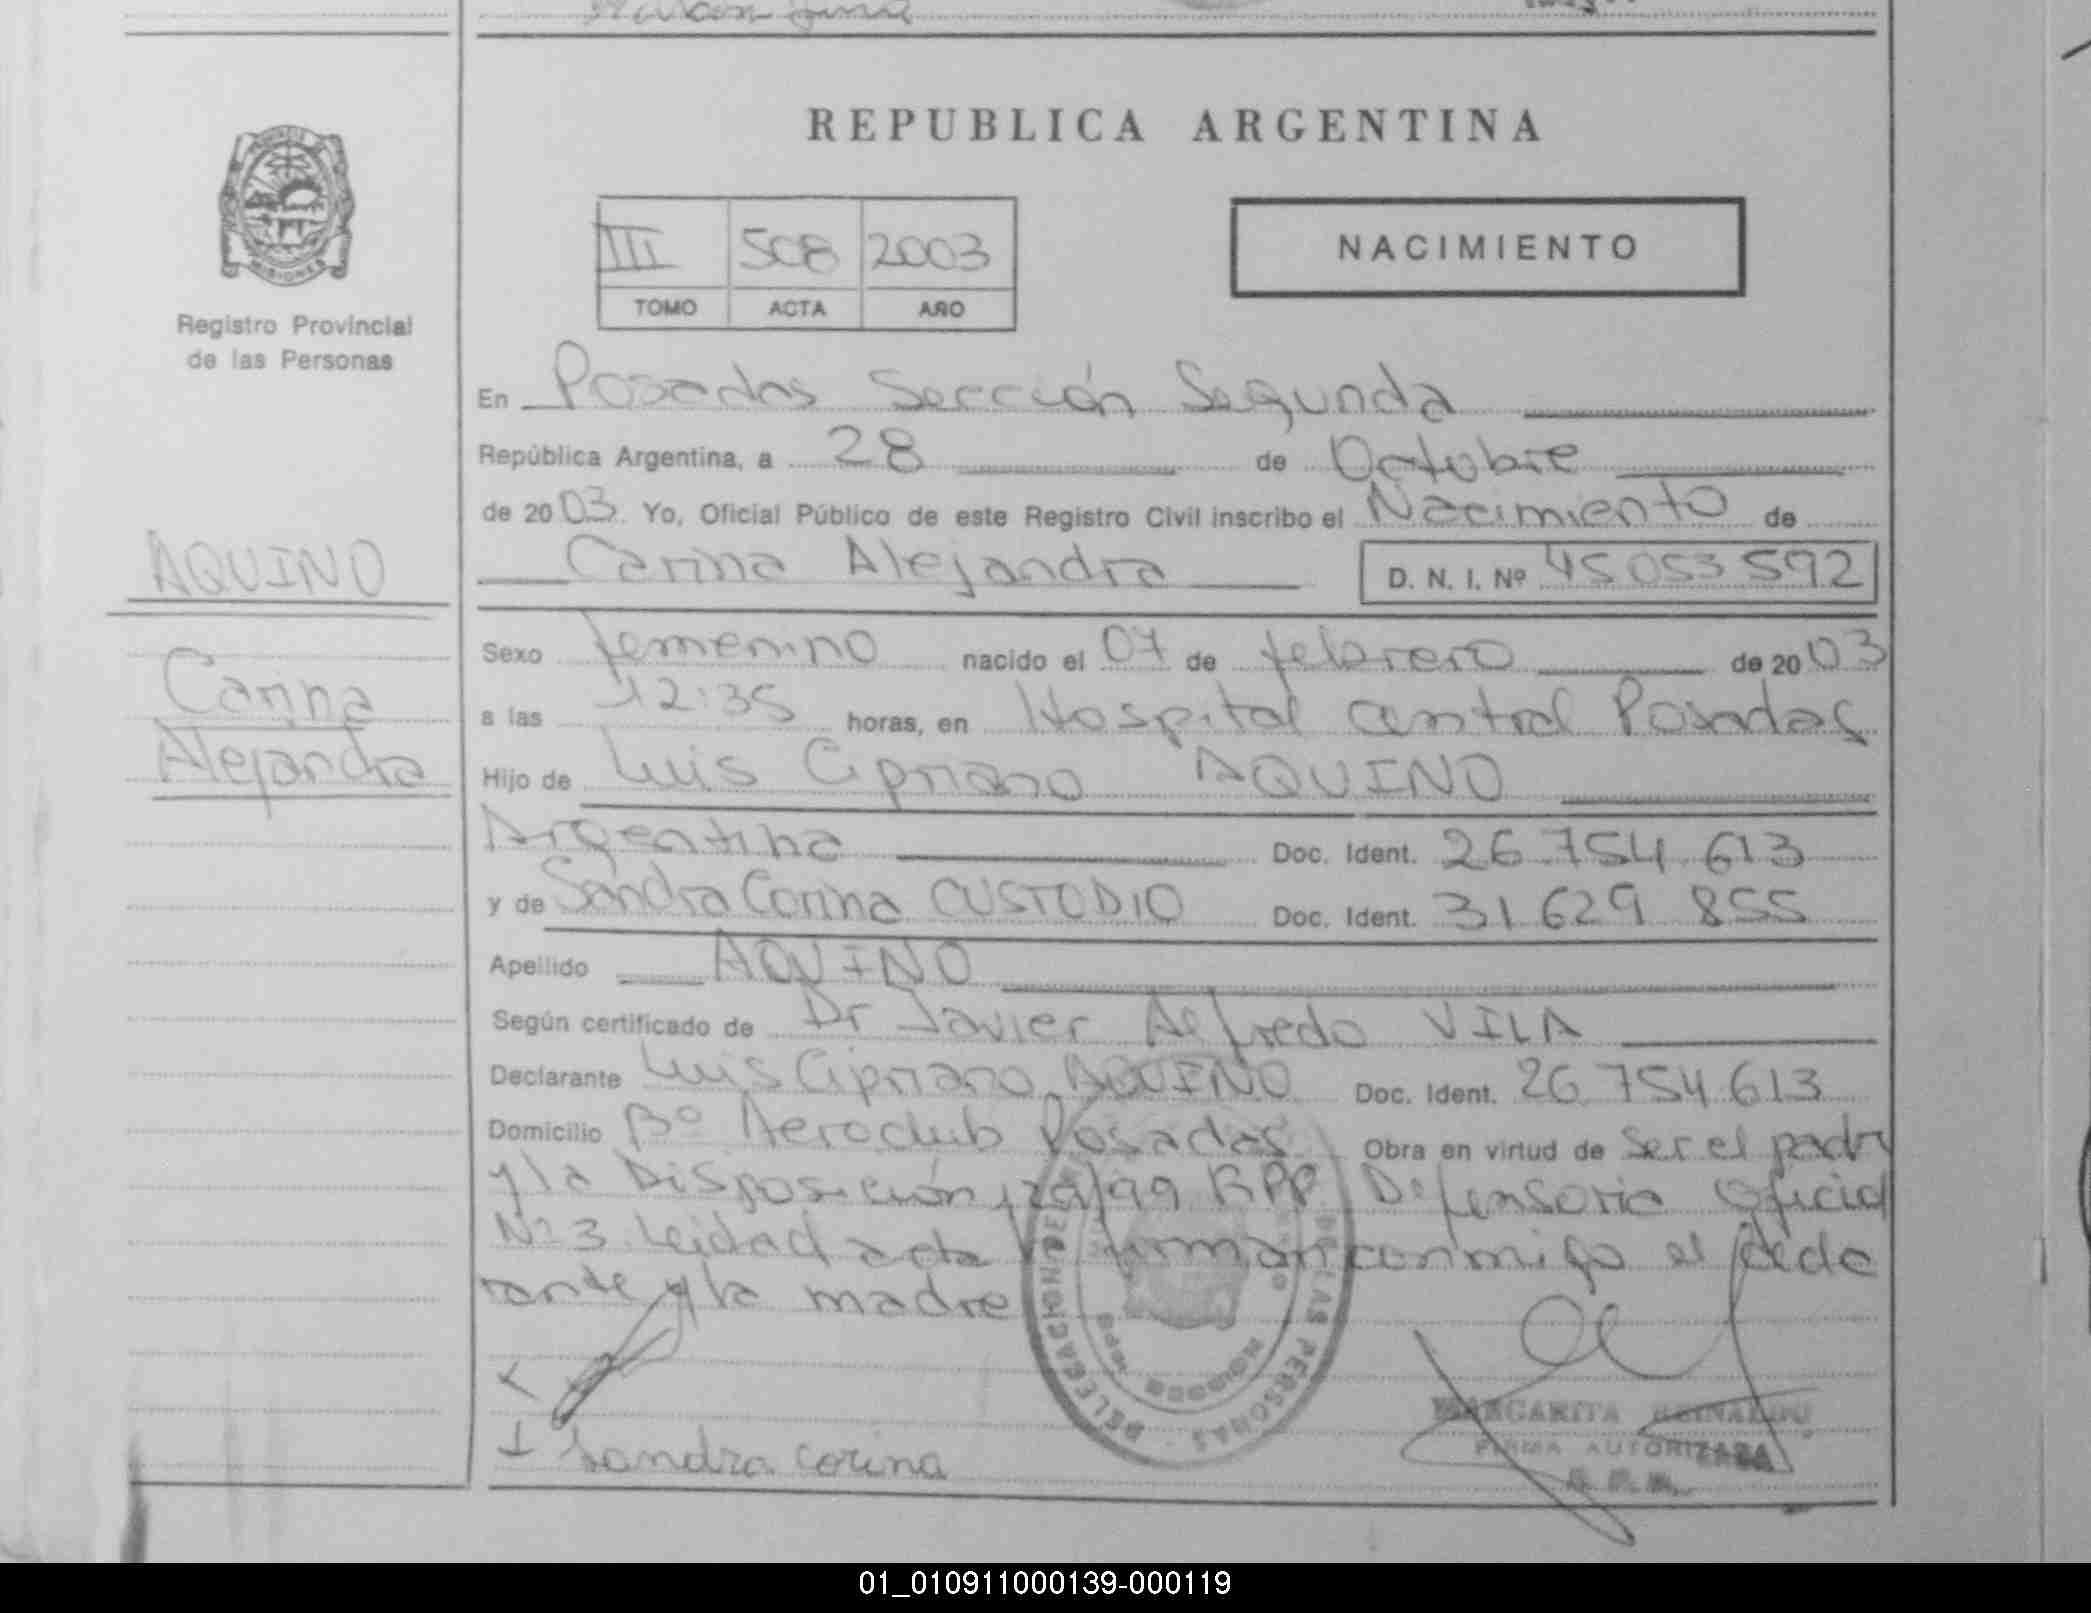 REPUBLICA ARGENTINA
III 508 2003
TOMO ACTA AÑO
NACIMIENTO
MISIONES
Registro Provincial
de las Personas
AQUINO
Carina
Alejandra
En Posadas Sección Segunda
República Argentina, a 28 de Octubre
de 2003. Yo, Oficial Público de este Registro Civil inscribo el Nacimiento de
Carina Alejandra D. N. I. Nº 45 053 592
Sexo femenino nacido el 07 de febrero de 2003
a las 12:35 horas, en Hospital Central Posadas
Hijo de Luis Cipriano AQUINO
Argentina Doc. Ident. 26 754 613
y de Sandra Corina CUSTODIO Doc. Ident. 31 629 855
Apellido AQUINO
Según certificado de Dr Javier Alfredo VILA
Declarante Luis Cipriano AQUINO Doc. Ident. 26 754 613
Domicilio Bº Aeroclub Posadas Obra en virtud de Ser el padre
y la Disposición /99 RPP Defensoria Oficial
Nº 3 Leidad acta firman conmigo el decla
rante y la madre
Sandra corina
DELEGACION DE LAS PERSONAS
MARGARITA REINALDO
FIRMA AUTORIZADA
01_010911000139-000119